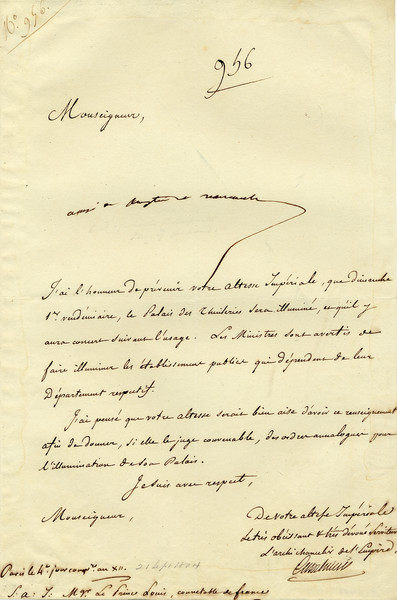 N.° 956.
956
Monseigneur,
J'ai l'honneur de prévenir votre altesse Impériale, que dimanche
1er vendémiaire, le Palais des Thuileries sera illuminé, et qu'il y
aura concert suivant l'usage. Les Ministres sont avertis de
faire illuminer les établissemens publics qui dépendent de leur
Département respectif.
J'ai pensé que votre altesse serait bien aise d'avoir ce renseignement
afin de donner, si elle le juge convenable, des ordres analogues pour
l'illumination de son Palais.
Je suis avec respect,
Monseigneur,
De Votre altesse Impériale
Le très obéissant & très dévoué Serviteur
L'archichancelier de l'Empire
Paris le 4e jour compre. an XII. 21 sept 1804
S. a. I. Mgr. Le Prince Louis, connétable de france